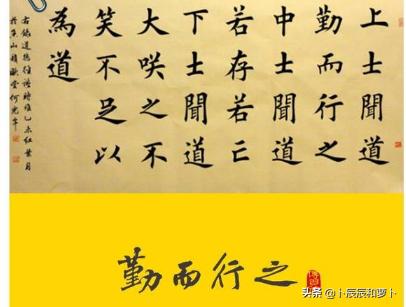 上士聞道
勤而行之
中士聞道
若存若亡
下士聞道
大咲之不
笑不足以
為道
右錄道德經語時維乙未紅葉月
勤而行之
头条 @卜辰辰和萝卜